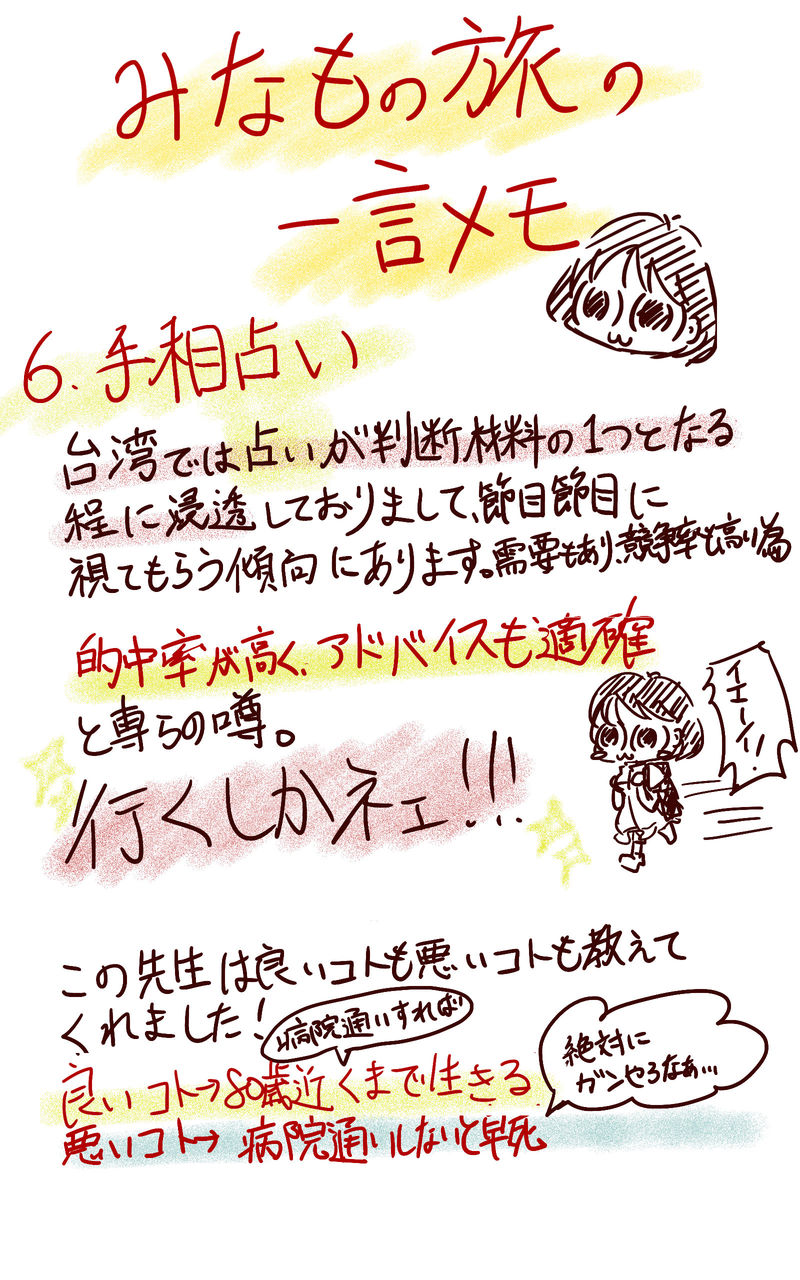 みなもの旅の
一言メモ
6.手相占い
台湾では占いが判断材料の1つとなる
程に浸透しておりまして、節目節目に
視てもらう傾向にあります。需要もあり、競争率も高い為
的中率が高く、アドバイスも適確
と専らの噂。
イエーイ!!
行くしかネェ!!!
この先生は良いコトも悪いコトも教えて
くれました!
病院通いすれば
良いコト→80歳近くまで生きる
絶対に
ガンやろなぁ…
悪いコト→病院通いしないと早死